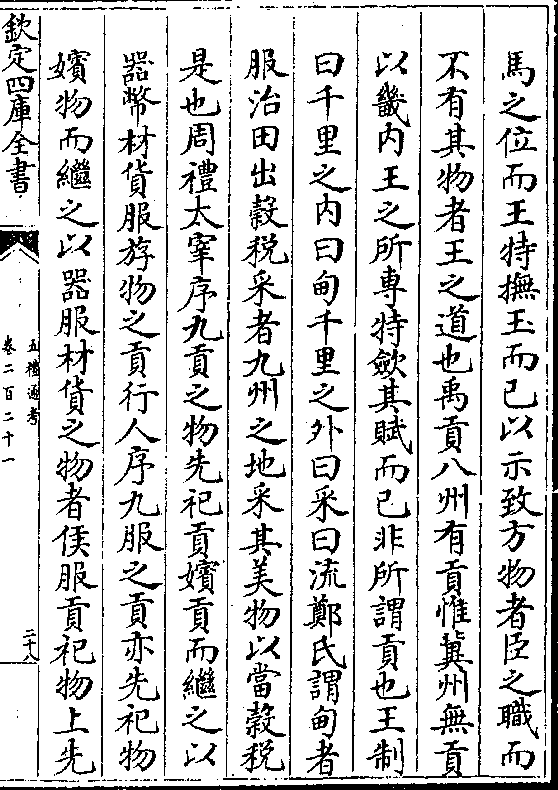 馬之位而王特撫玉而已以示致方物者臣之職而
不有其物者王之道也禹貢八州有貢惟冀州無貢
以畿内王之所專特斂其賦而已非所謂貢也王制
曰千里之内曰甸千里之外曰采曰流鄭氏謂甸者
服治田出榖税采者九州之地采其美物以當榖税
是也周禮太宰序九貢之物先祀貢嬪貢而繼之以
器幣材貨服斿物之貢行人序九服之貢亦先祀物
嬪物而繼之以器服材貨之物者侯服貢祀物上先
欽定四庫全書
五禮通考
卷二百二十一
二十八